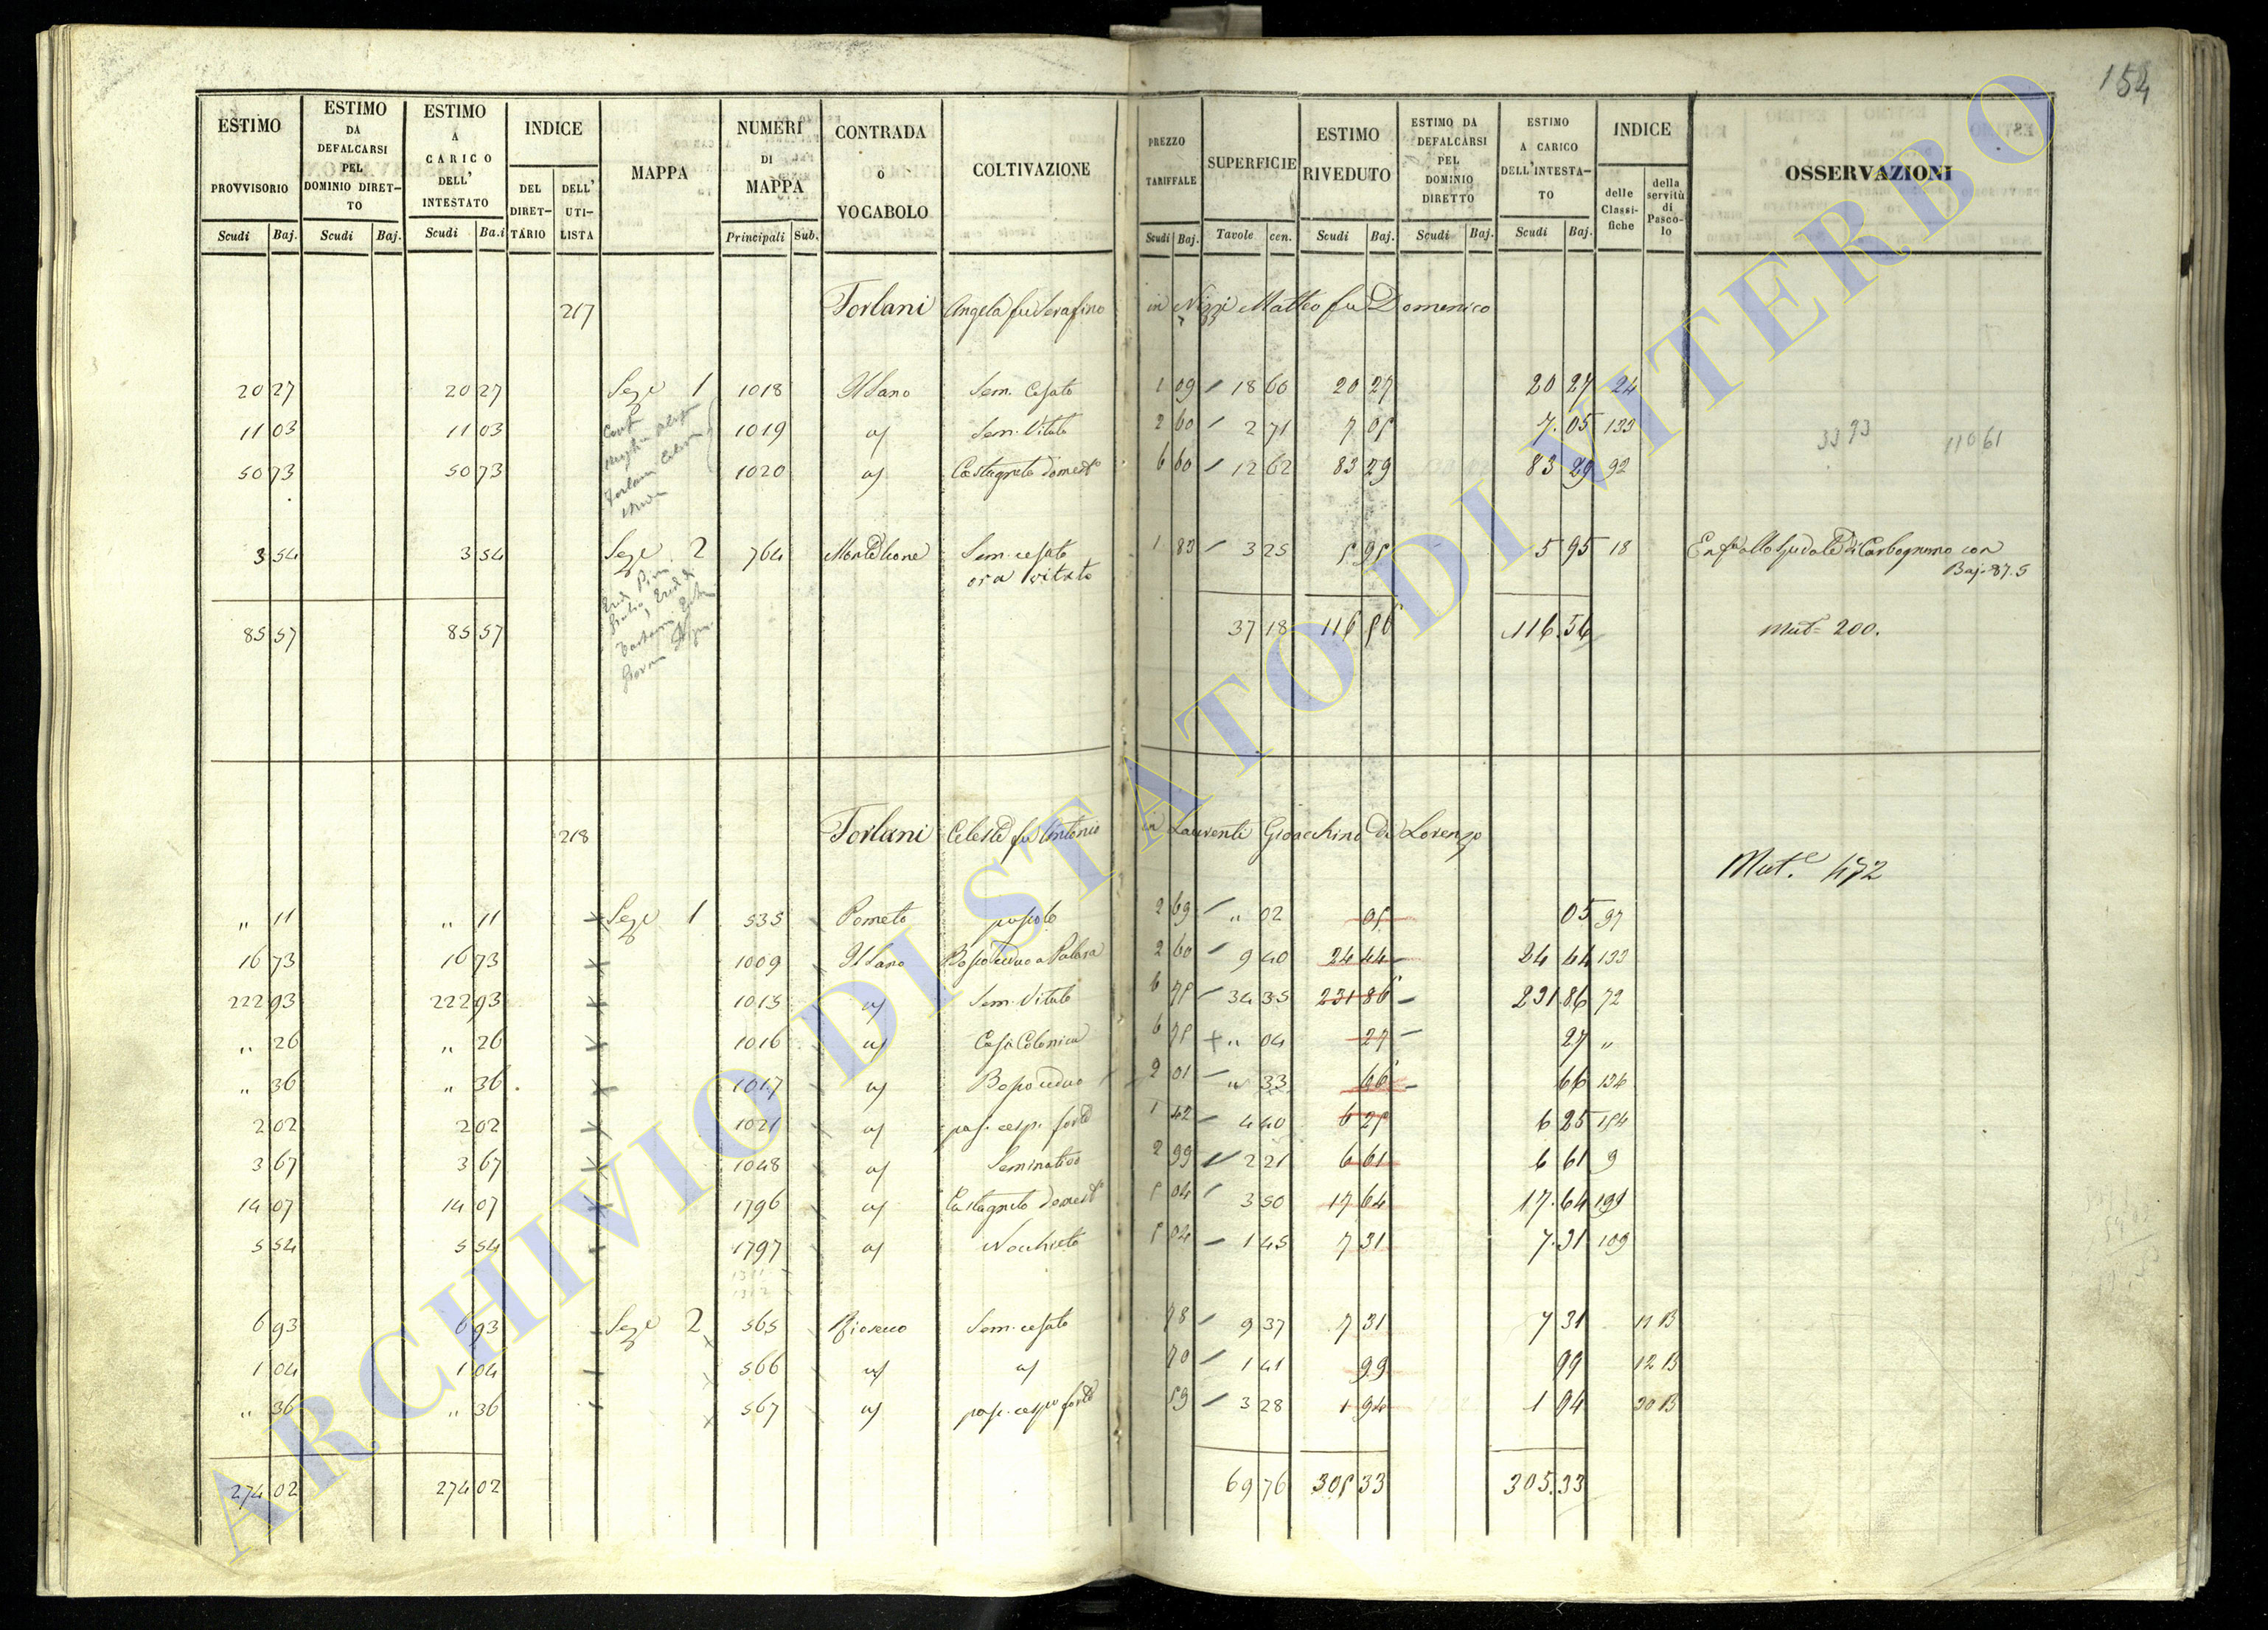 154
ESTIMO PROVVISORIO | ESTIMO DA DEFALCARSI PEL DOMINIO DIRET-TO | ESTIMO A CARICO DELL' INTESTATO | INDICE | MAPPA | NUMERI DI MAPPA | CONTRADA O VOCABOLO | COLTIVAZIONE | PREZZO TARIFFALE | SUPERFICIE | ESTIMO RIVEDUTO | ESTIMO DA DEFALCARSI PEL DOMINIO DIRETTO | ESTIMO A CARICO DELL'INTESTA-TO | INDICE | OSSERVAZIONI
DEL DIRET-TARIO | DELL' UTI-LISTA | delle Classi-fiche | della servitù di Pasco-lo
Scudi | Baj. | Scudi | Baj. | Scudi | Ba.i | Principali | Sub. | Scudi | Baj. | Tavole | cen. | Scudi | Baj. | Scudi | Baj. | Scudi | Baj.
217 Forlani Angela fu Serafino in Nizzi Matteo fu Domenico
20 27 | 20 27 | Seze 1 | 1018 | Il Lano | Sem. Cesato | 1 09 | 18 60 | 20 27 | 20 27 | 24
11 03 | 11 03 | 1019 | Sem. Vitato | 2 60 | 2 71 | 7 05 | 7.05 | 133
50 73 | 50 73 | 1020 | Castagneto domest | 6 60 | 12 62 | 83 29 | 83 29 | 92
3 54 | 3 54 | Seze 2 | 764 | Sem. cesato | 1 83 | 3 25 | 5 95 | 5 95 | 18 | Baj. 87.5
ora vitato
85 57 | 85 57 | 37 18 | 116 56 | 116.56 | Mut= 200.
218 Forlani Celeste fu Antonio in Laurenti Gioacchino di Lorenzo
Mut.e 472
" 11 | " 11 | Seze 1 | 535 | Pometo | 2 69 | " 02 | 05 | 05 | 97
16 73 | 16 73 | 1009 | Il Lano | Bosco ceduo a Palara | 2 60 | 9 40 | 24 44 | 24 44 | 133
222 93 | 222 93 | 1015 | Sem. Vitato | 6 75 | 34 35 | 231 86 | 231.86 | 72
" 26 | " 26 | 1016 | Casa Colonica | 6 75 | " 04 | 27 | 27 | "
" 36 | " 36 | 1017 | Bosco ceduo | 2 01 | " 33 | 66 | 66 | 136
2 02 | 2 02 | 1021 | pas. cesp. forte | 1 42 | 4 40 | 6 25 | 6 25 | 154
3 67 | 3 67 | 1048 | Seminativo | 2 99 | 2 21 | 6 61 | 6 61 | 9
14 07 | 14 07 | 1796 | Castagneto domest | 5 04 | 3 50 | 17 64 | 17.64 | 191
5 54 | 5 54 | 1797 | Nocchieto | 5 04 | 1 45 | 7 31 | 7.31 | 109
6 93 | 6 93 | Seze 2 | 565 | Sem. cesato | 78 | 9 37 | 7 31 | 7 31 | 11 B
1 04 | 1 04 | 566 | 70 | 1 41 | 99 | 99 | 12 B
" 36 | " 36 | 567 | pas. cesp. forte | 59 | 3 28 | 1 94 | 1 94 | 20 B
274 02 | 274 02 | 69 76 | 305 33 | 305.33
ARCHIVIO DI STATO DI VITERBO